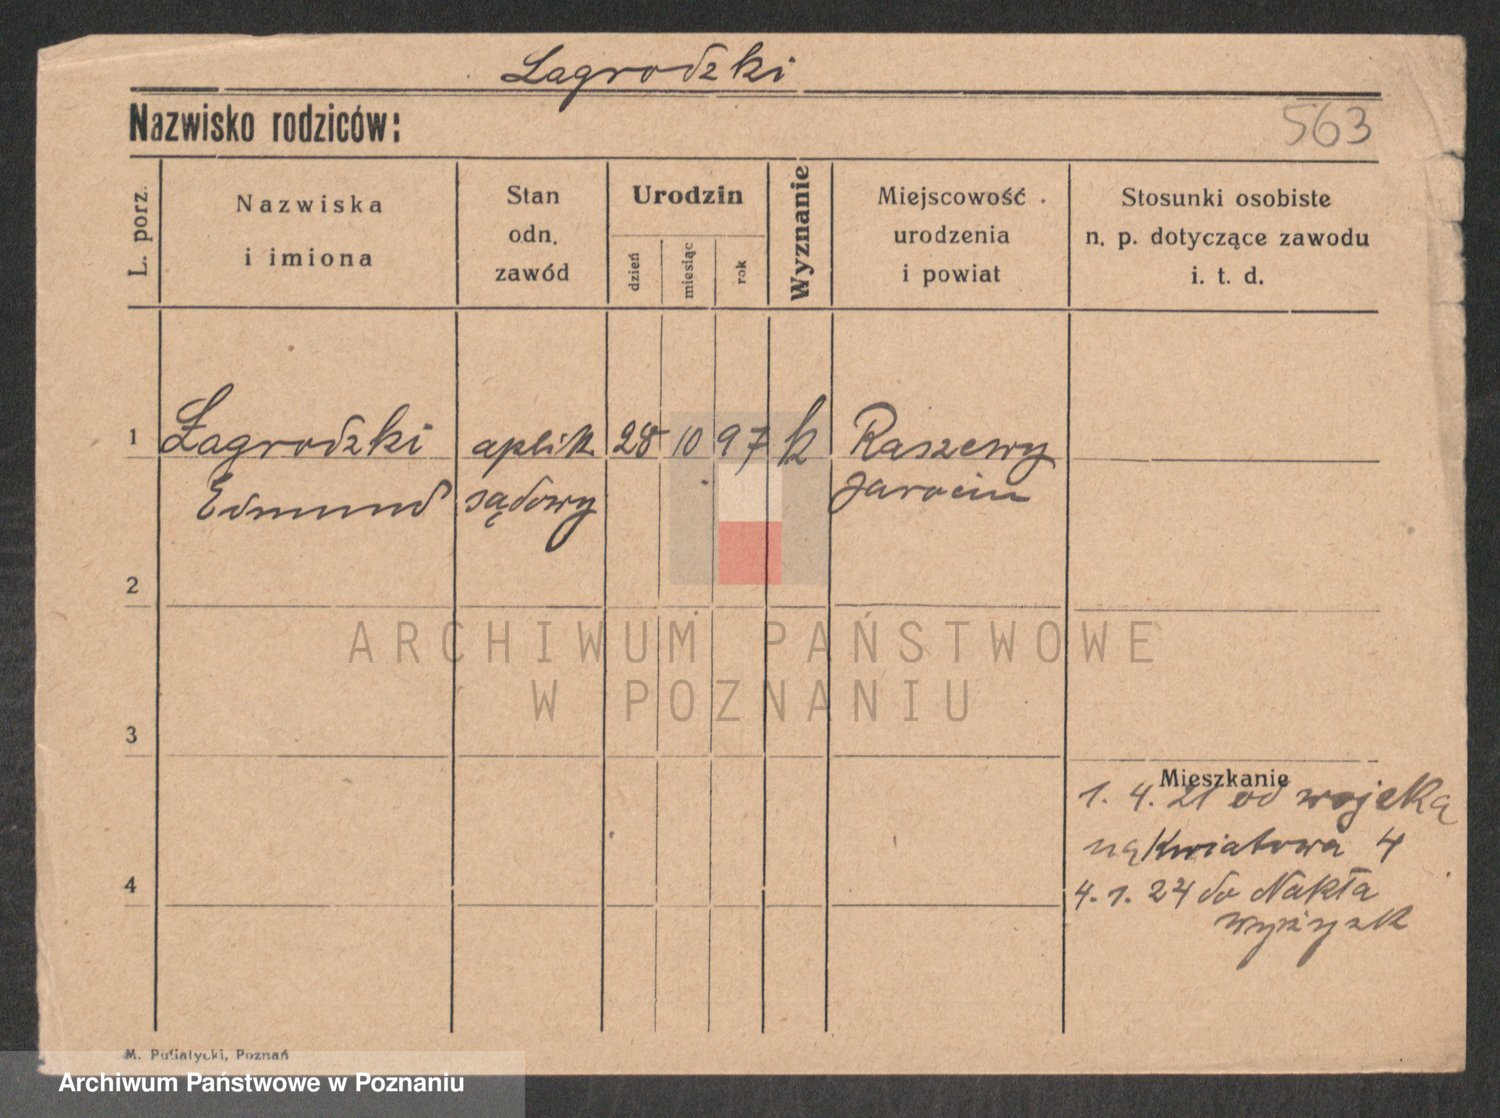 Łagrodzki
Nazwisko rodziców:
563
L. porz.
Nazwiska
i imiona
Stan
odn.
zawód
Urodzin
dzień
miesiąc
rok
Wyznanie
Miejscowość
urodzenia
i powiat
Stosunki osobiste
n. p. dotyczące zawodu
i. t. d.
1
Łagrodzki
Edmund
aplik
sądowy
28
10
97
k
Raszewy
Jarocin
2
3
4
Mieszkanie
1. 4. 21 od wojska
na Kwiatowa 4
4. 1. 24 do Nakła
wyżysk
ARCHIWUM PAŃSTWOWE
W POZNANIU
M. Putiatycki, Poznań
Archiwum Państwowe w Poznaniu